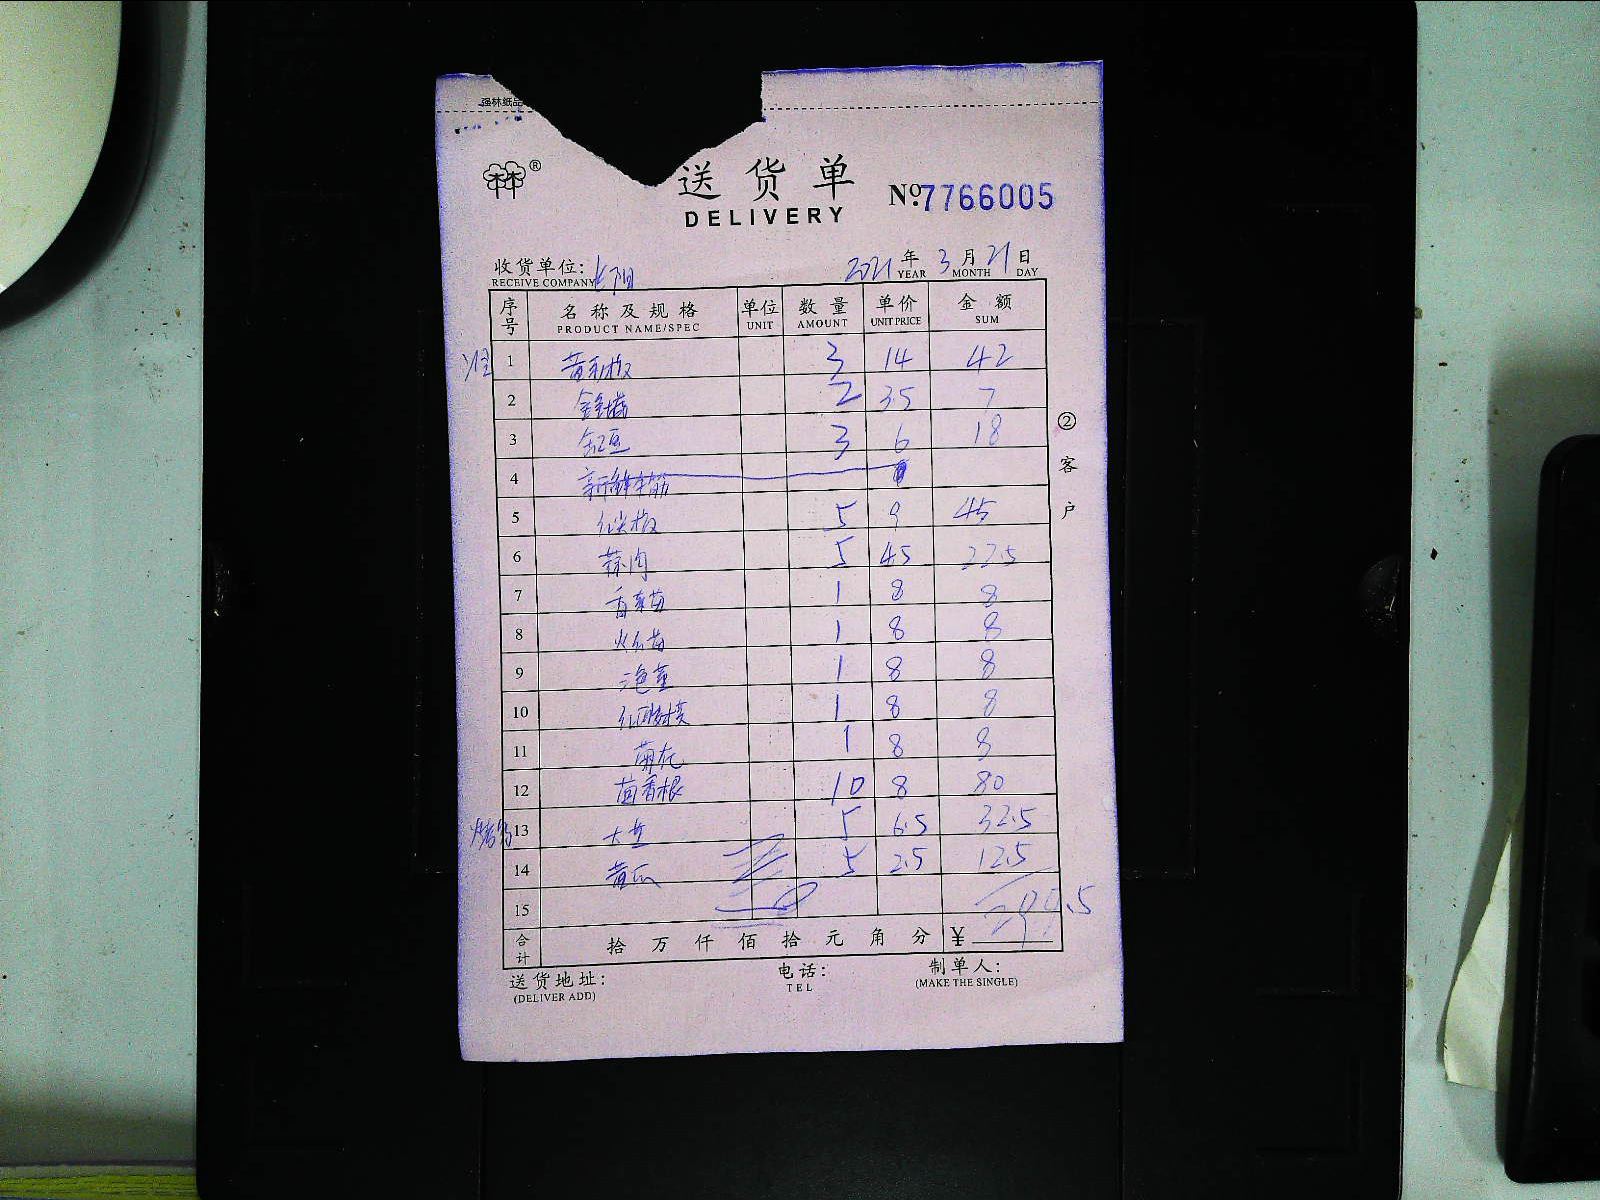 强林纸品
林 ®
送货单 No.7766005
DELIVERY
收货单位: 2021 年 3 月 21 日
RECEIVE COMPANY YEAR MONTH DAY
序号 名称及规格 单位 数量 单价 金额
PRODUCT NAME/SPEC UNIT AMOUNT UNIT PRICE SUM
1 3 14 42
2 2 3.5 7
3 豆 3 6 18
4 新鲜牛筋
5 红尖椒 5 9 45
6 蒜肉 5 4.5 22.5
7 香菜苗 1 8 8
8 1 8 8
9 1 8 8
10 1 8 8
11 菊花 1 8 8
12 茴香根 10 8 80
13 5 6.5 32.5
14 黄瓜 5 2.5 12.5
15 299.5
合计 拾 万 仟 佰 拾 元 角 分 ¥
送货地址: 电话: 制单人:
(DELIVER ADD) TEL (MAKE THE SINGLE)
② 客户